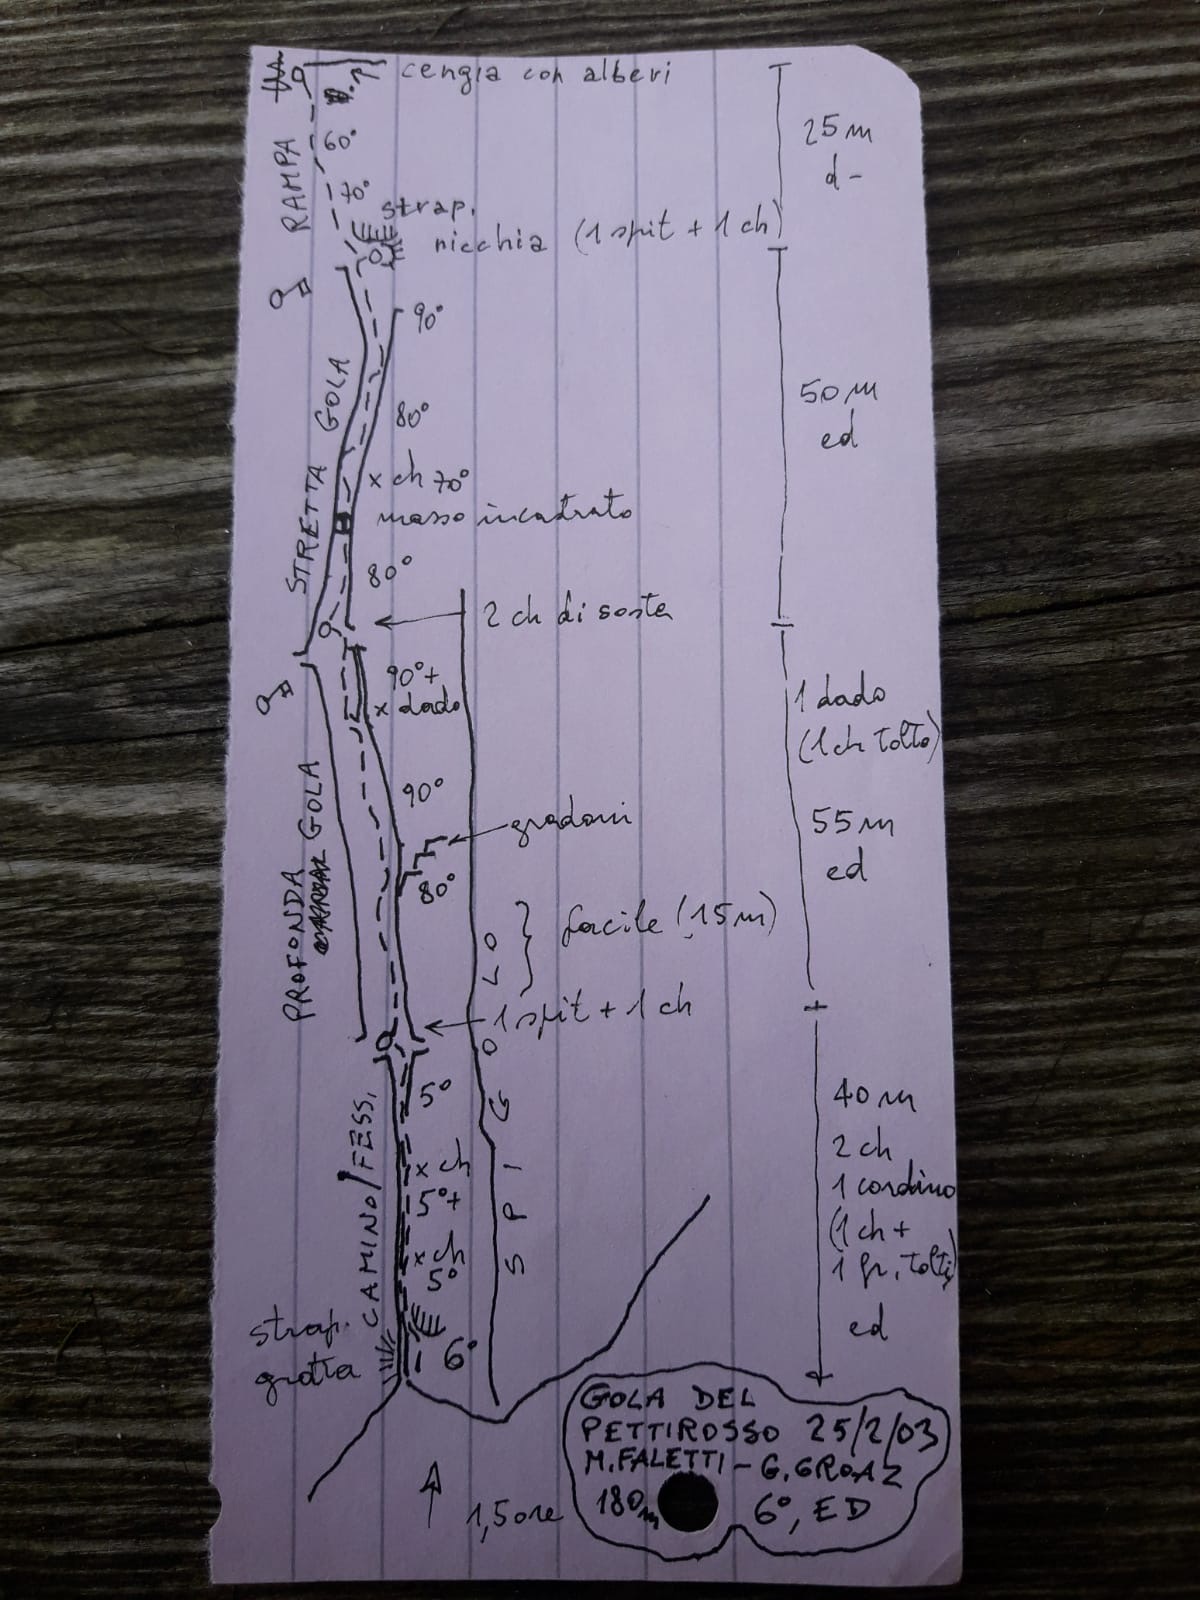 cengia con alberi
60°
70°
RAMPA
strap.
nicchia (1 spit + 1 ch)
25 m
d-
90°
80°
STRETTA GOLA
x ch 70°
masso incastrato
80°
50 m
ed
2 ch di sosta
90°+
x dado
90°
gradoni
80°
PROFONDA GOLA
facile (15m)
1 spit + 1 ch
1 dado
(1 ch tolto)
55 m
ed
SPIGOLO
5°
x ch
5°+
x ch
5°
CAMINO/FESS.
strap.
grotta
6°
40 m
2 ch
1 cordino
(1 ch +
1 fr. tolti)
ed
1,5 ore
GOLA DEL
PETTIROSSO 25/2/03
M. FALETTI - G. GROAZ
180m 6°, ED